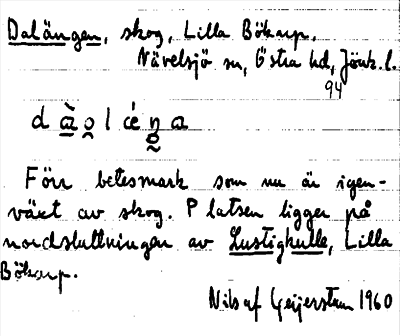 Dalängen, skog, Lilla Bökarp.
Nävelsjö sn, Östra hd, Jönk. l.
94
d a̠̾ o̯ l é ŋ a
Förr betesmark som nu är igen-
växt av skog. Platsen ligger på
nordsluttningen av Lustigkulle, Lilla
Bökarp.
Nils af Geijerstam 1960